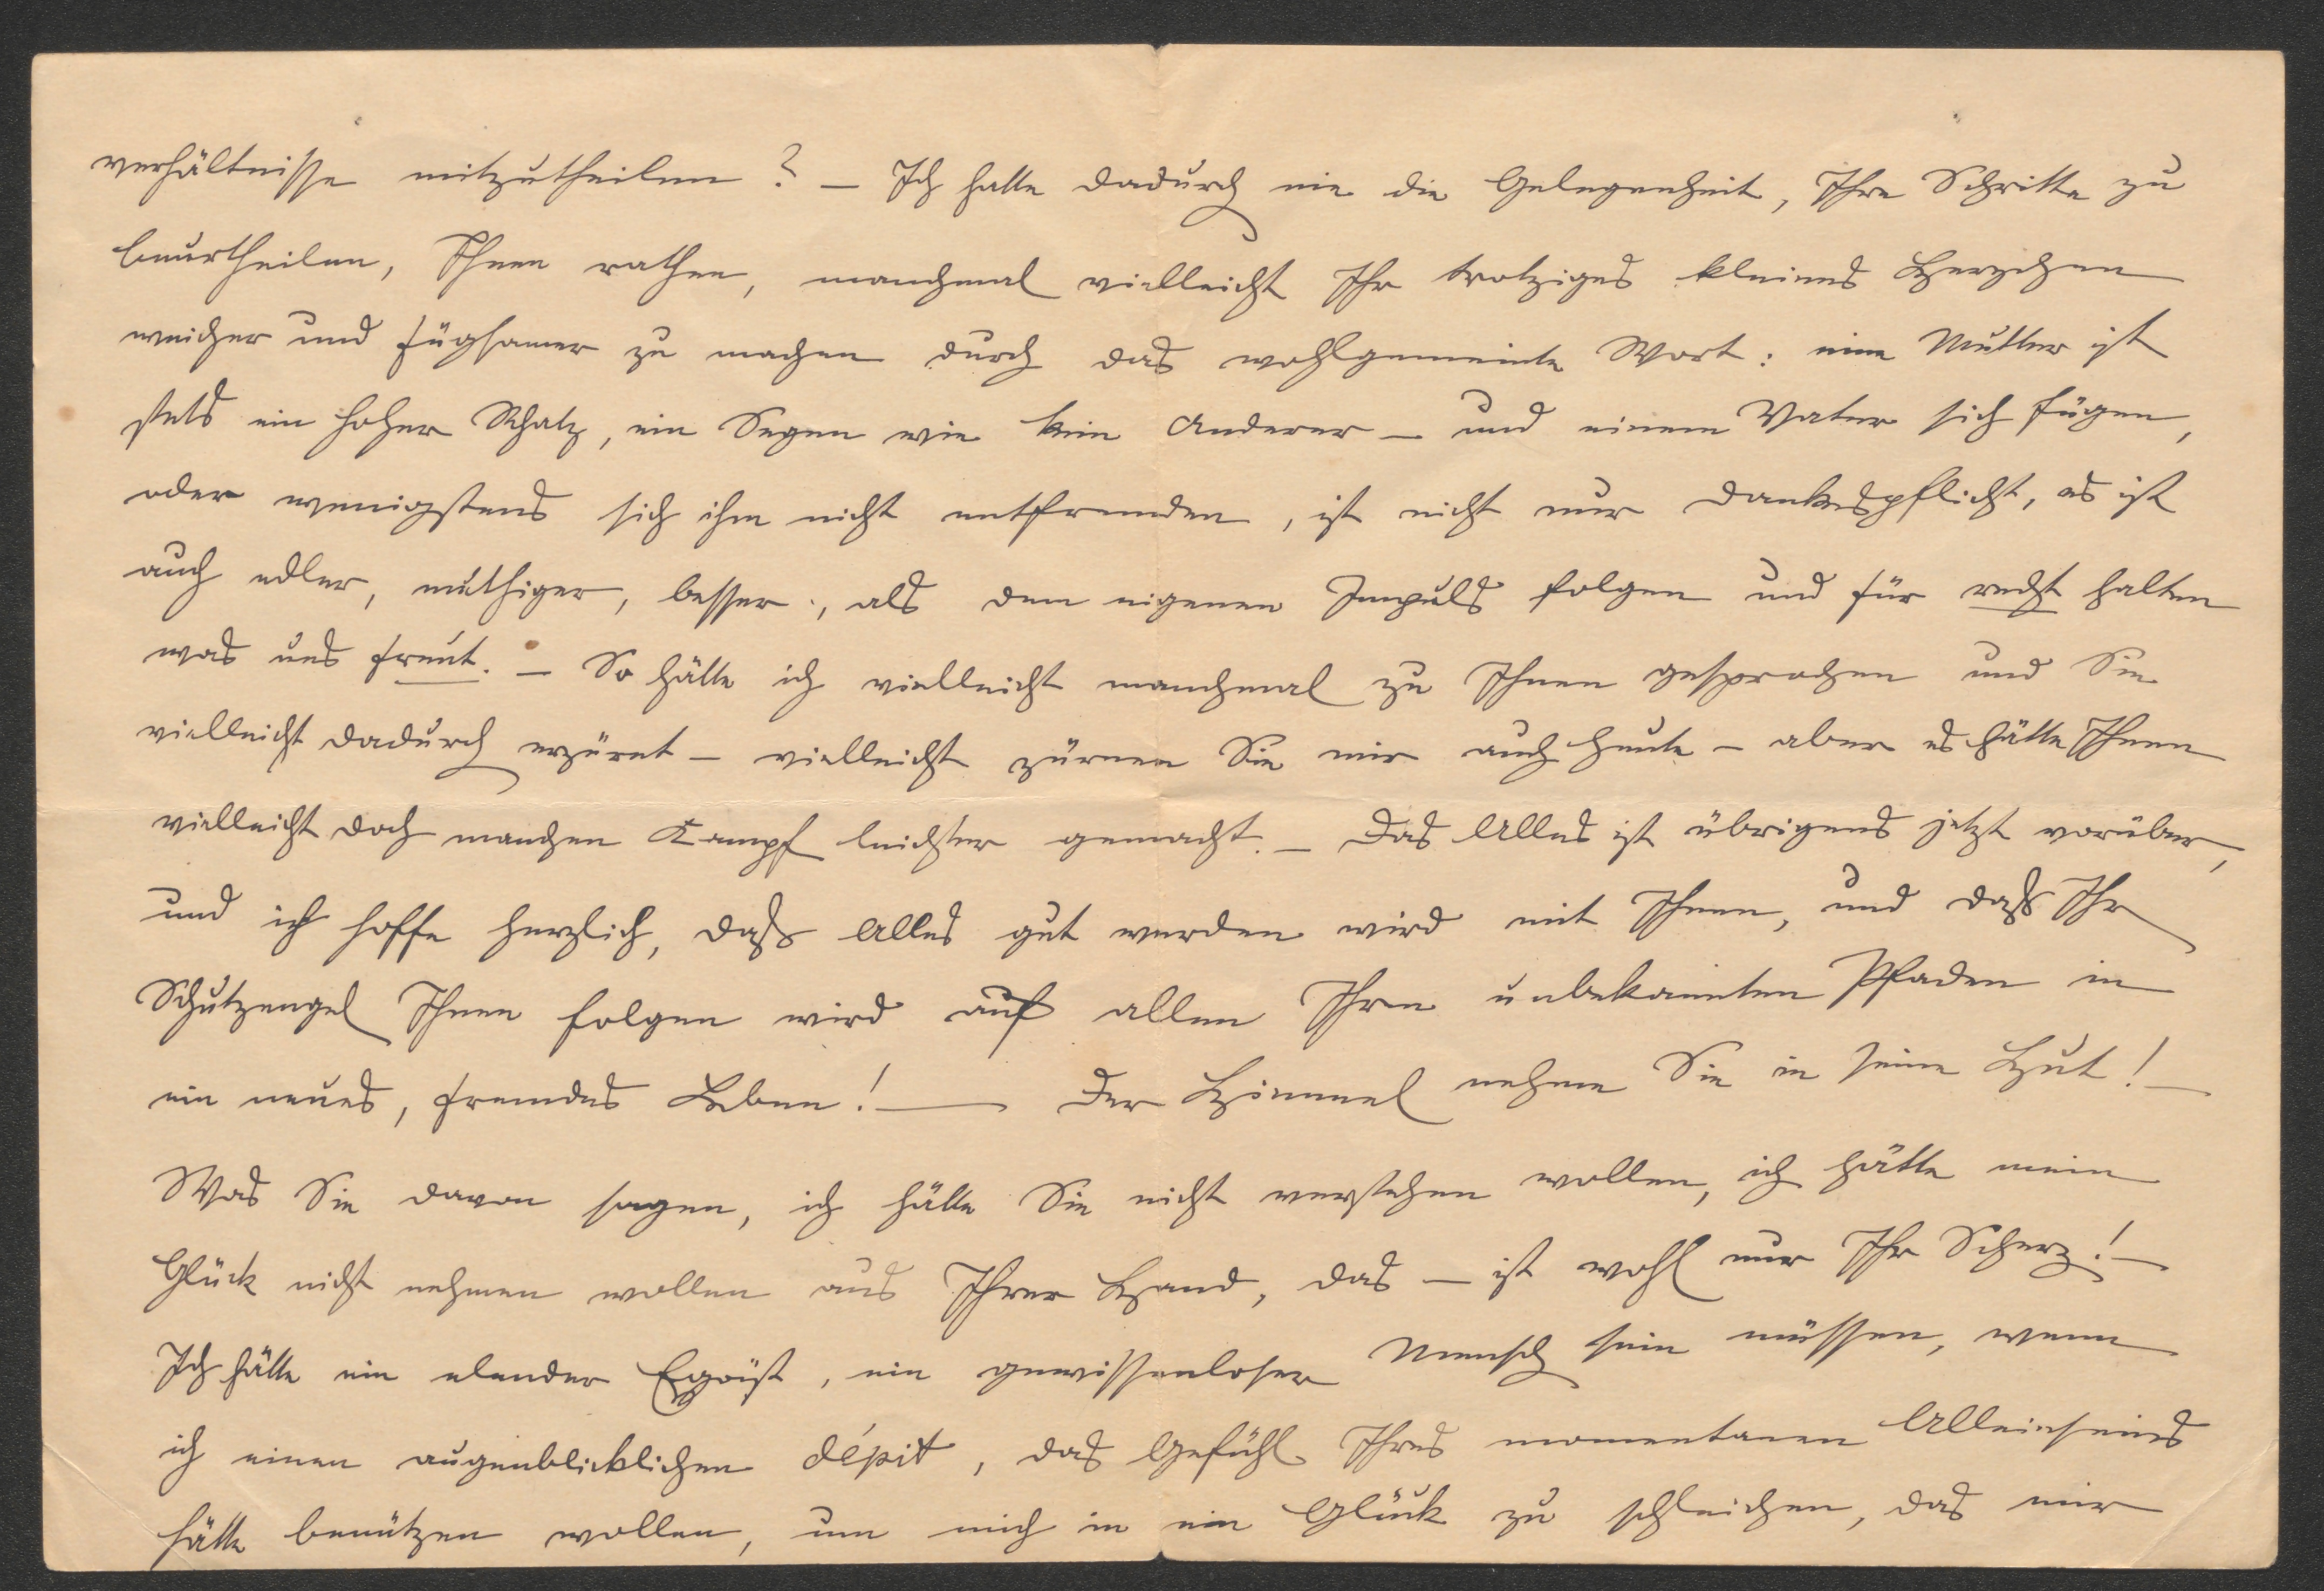 verhältnisse mitzutheilen? – Ich hatte dadurch nie die Gelegenheit, Ihre Schritte zu
beurtheilen, Ihnen rathen, manchmal vielleicht Ihr trotziges kleines Herzchen
weicher und fügsamer zu machen durch das wohlgemeinte Wort: eine Mutter ist
stets ein hoher Schatz, ein Segen wie kein Anderer – und einem Vater sich fügen,
oder wenigstens sich ihm nicht entfremden, ist nicht nur Dankespflicht, es ist
auch edler, muthiger, besser, als dem eigenen Impuls folgen und für recht halten
was uns freut. – So hätte ich vielleicht manchmal zu Ihnen gesprochen und Sie
vielleicht dadurch erzürnt – vielleicht zürnen Sie mir auch heute – aber es hätte Ihnen
vielleicht doch manchen Kampf leichter gemacht. – Das Alles ist übrigens jetzt vorüber,
und ich hoffe herzlich, daß Alles gut werden wird mit Ihnen, und daß Ihr
Schutzengel Ihnen folgen wird auf allen Ihren unbekannten Pfaden in
ein neues, fremdes Leben! — Der Himmel nehme Sie in seine Hut! –
Was Sie davon sagen, ich hätte Sie nicht verstehen wollen, ich hätte mein
Glück nicht nehmen wollen aus Ihrer Hand, das – ist wohl nur Ihr Scherz! –
Ich hätte ein elender Egoïst, ein gewissenloser Mensch sein müssen, wenn
ich einen augenblicklichen dépit, das Gefühl Ihres momentanen Alleinseins
hätte benützen wollen, um mich in ein Glück zu schleichen, das mir